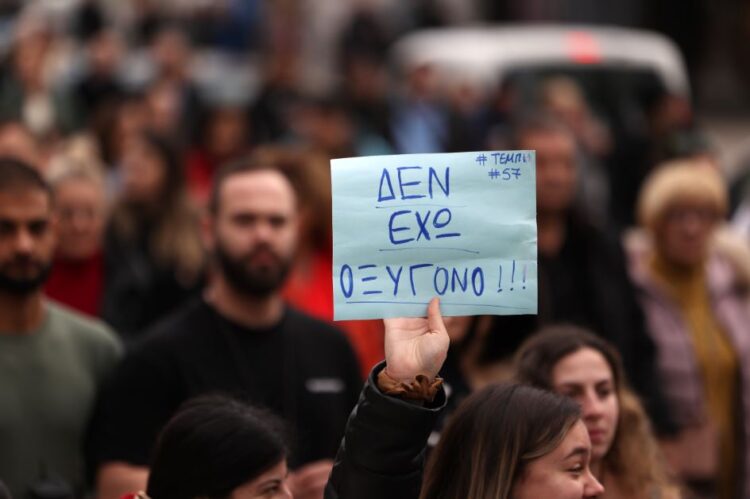 # ΤΕΜΠΗ
# 57
ΔΕΝ
ΕΧΩ
ΟΞΥΓΟΝΟ!!!